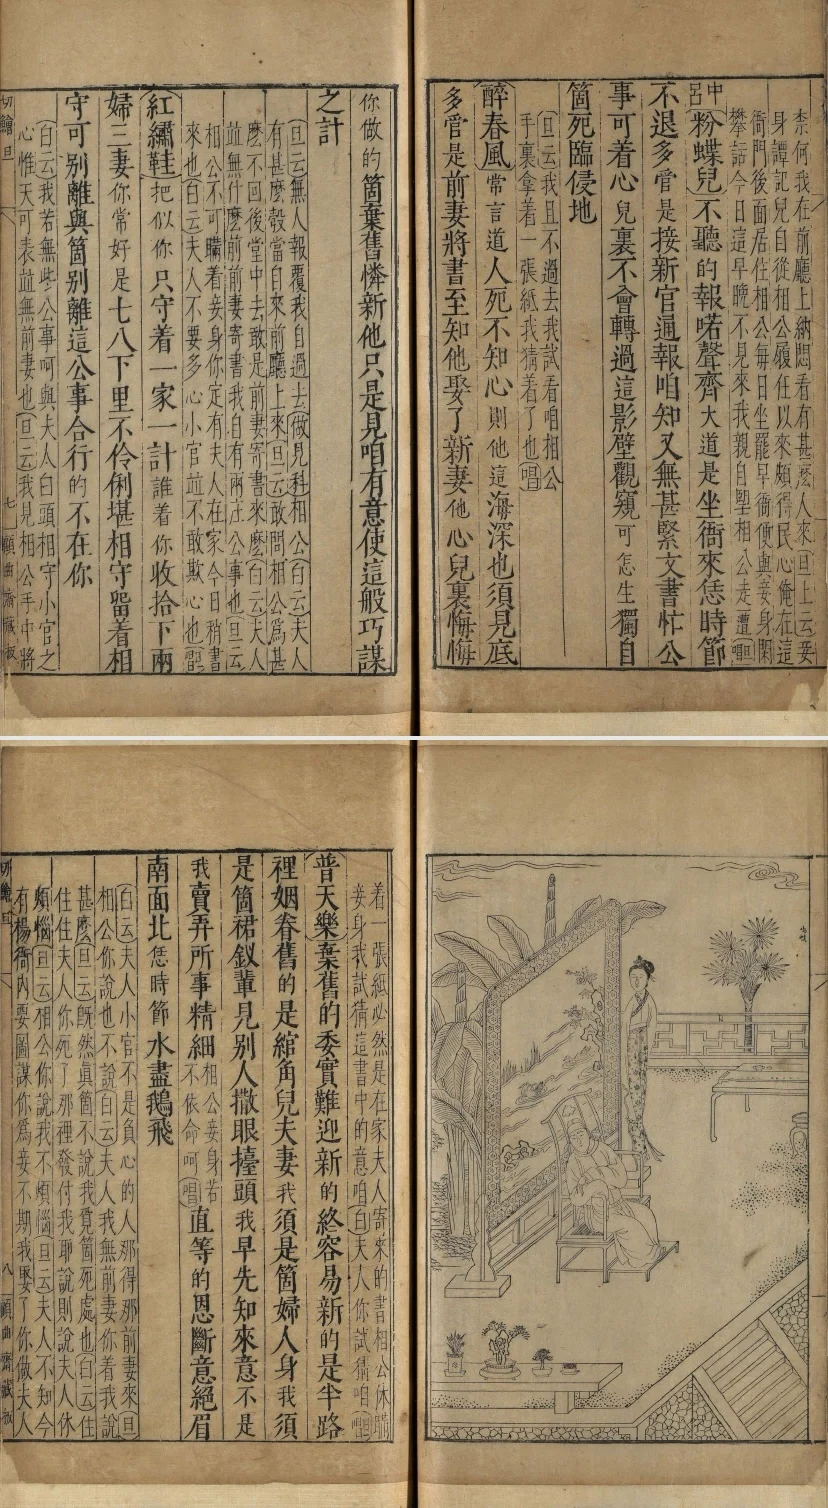 柰何我在前廳上納悶看有甚麽人來旦上云妾
身譚記兒自從相公履任以來頗得民心俺在這
衙門後面居住相公每日坐罷早衙便與妾身閑
攀話今日這早晚不見來我親自望相公走遭唱
中呂粉蝶兒不聽的報喏聲齊大道是坐衙來恁時節
不退多管是接新官通報咱知又無甚緊文書忙公
事可着心兒裏不會轉過這影壁觀窺可怎生獨自
箇死臨侵地
旦云我且不過去我試看咱相公
手裏拿着一張紙我猜着了也唱
醉春風常言道人死不知心則他這海深也須見底
多管是前妻將書至知他娶了新妻他心兒裏悔悔
你做的箇棄舊憐新他只是見咱有意使這般巧謀
之計
旦云無人報覆我自過去做見科相公白云夫人
有甚麽彀當自來前廳上來旦云敢問相公爲甚
麽不回後堂中去敢是前妻寄書來麽白云夫人
並無什麽前前妻寄書我自有兩庄公事也旦云
相公不可瞞着妾身你定有夫人在家今日稍書
來也白云夫人不要多心小官並不敢欺心也
紅繡鞋把似你只守着一家一計誰着你收拾下兩
婦三妻你常好是七八下里不伶俐堪相守畱着相
守可別離與箇別離這公事合行的不在你
白云我若無些公事呵與夫人白頭相守小官之
心惟天可表並無前妻也旦云我見相公手中將
切鱠旦 七 顧曲齋藏板
着一張紙必然是在家夫人寄來的書相公休瞞
妾身我試猜這書中的意咱白夫人你試猜咱唱
普天樂棄舊的委實難迎新的終容易新的是半路
裡姻眷舊的是綰角兒夫妻我須是箇婦人身我須
是箇裙釵輩見別人撒眼擡頭我早先知來意不是
我賣弄所事精細相公妾身若不依命呵唱直等的恩斷意絕眉
南面北恁時節水盡鵝飛
白云夫人小官不是負心的人那得那前妻來旦
相公你說也不說白云夫人我無前妻你着我說
甚麽旦云旣然眞箇不說我覓箇死處也白云住
住住夫人你死了那裡發付我耶說則說夫人休
煩惱旦云相公你說我不煩惱旦云夫人不知今
有楊衙內要圖謀你爲妾不期我娶了你做夫人
切鱠旦 八 顧曲齋藏板